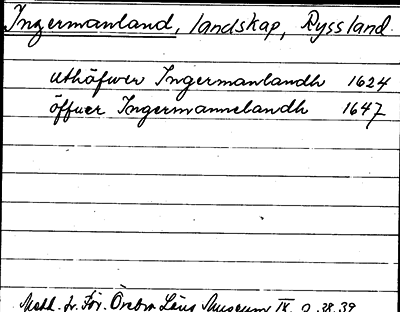 Ingermanland, landskap, Ryssland.
uthöfwer Ingermanlandh 1624
öffuer Ingermannelandh 1647
Medd. fr. För. Örebro Läns Museum IX, s. 38, 39